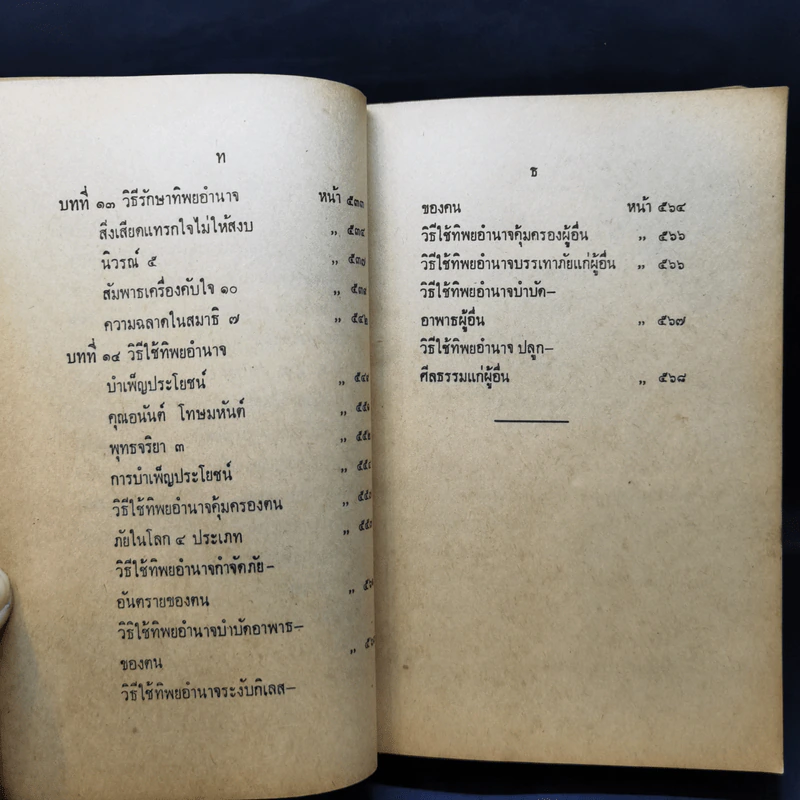 ท
บทที่ ๑๓ วิธีรักษาทิพยอำนาจ หน้า ๕๓๓
สิ่งเสียดแทรกใจไม่ให้สงบ ,, ๕๓๔
นิวรณ์ ๕ ,, ๕๓๗
สัมพาธเครื่องคับใจ ๑๐ ,,
ความฉลาดในสมาธิ ๗ ,, ๕๔๒
บทที่ ๑๔ วิธีใช้ทิพยอำนาจ
บำเพ็ญประโยชน์ ,,
คุณอนันต์ โทษมหันต์ ,,
พุทธจริยา ๓ ,, ๕๕๒
การบำเพ็ญประโยชน์ ,,
วิธีใช้ทิพยอำนาจคุ้มครองตน ,,
ภัยในโลก ๔ ประเภท ,,
วิธีใช้ทิพยอำนาจกำจัดภัย-
อันตรายของตน ,,
วิธีใช้ทิพยอำนาจบำบัดอาพาธ-
ของตน ,,
วิธีใช้ทิพยอำนาจระงับกิเลส-
ธ
ของตน หน้า ๕๖๔
วิธีใช้ทิพยอำนาจคุ้มครองผู้อื่น ,, ๕๖๖
วิธีใช้ทิพยอำนาจบรรเทาภัยแก่ผู้อื่น ,, ๕๖๖
วิธีใช้ทิพยอำนาจบำบัด-
อาพาธผู้อื่น ,, ๕๖๗
วิธีใช้ทิพยอำนาจ ปลูก-
ศีลธรรมแก่ผู้อื่น ,, ๕๖๘